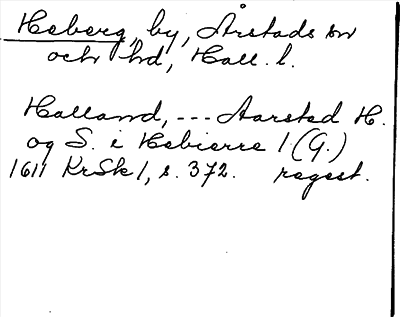 Heberg, by, Årstads sn
och hd, Hall. l.
Halland, --- Aarsted H.
og S. i Hebierre 1 (G.)
1611 KrSk 1, s. 372. regest.